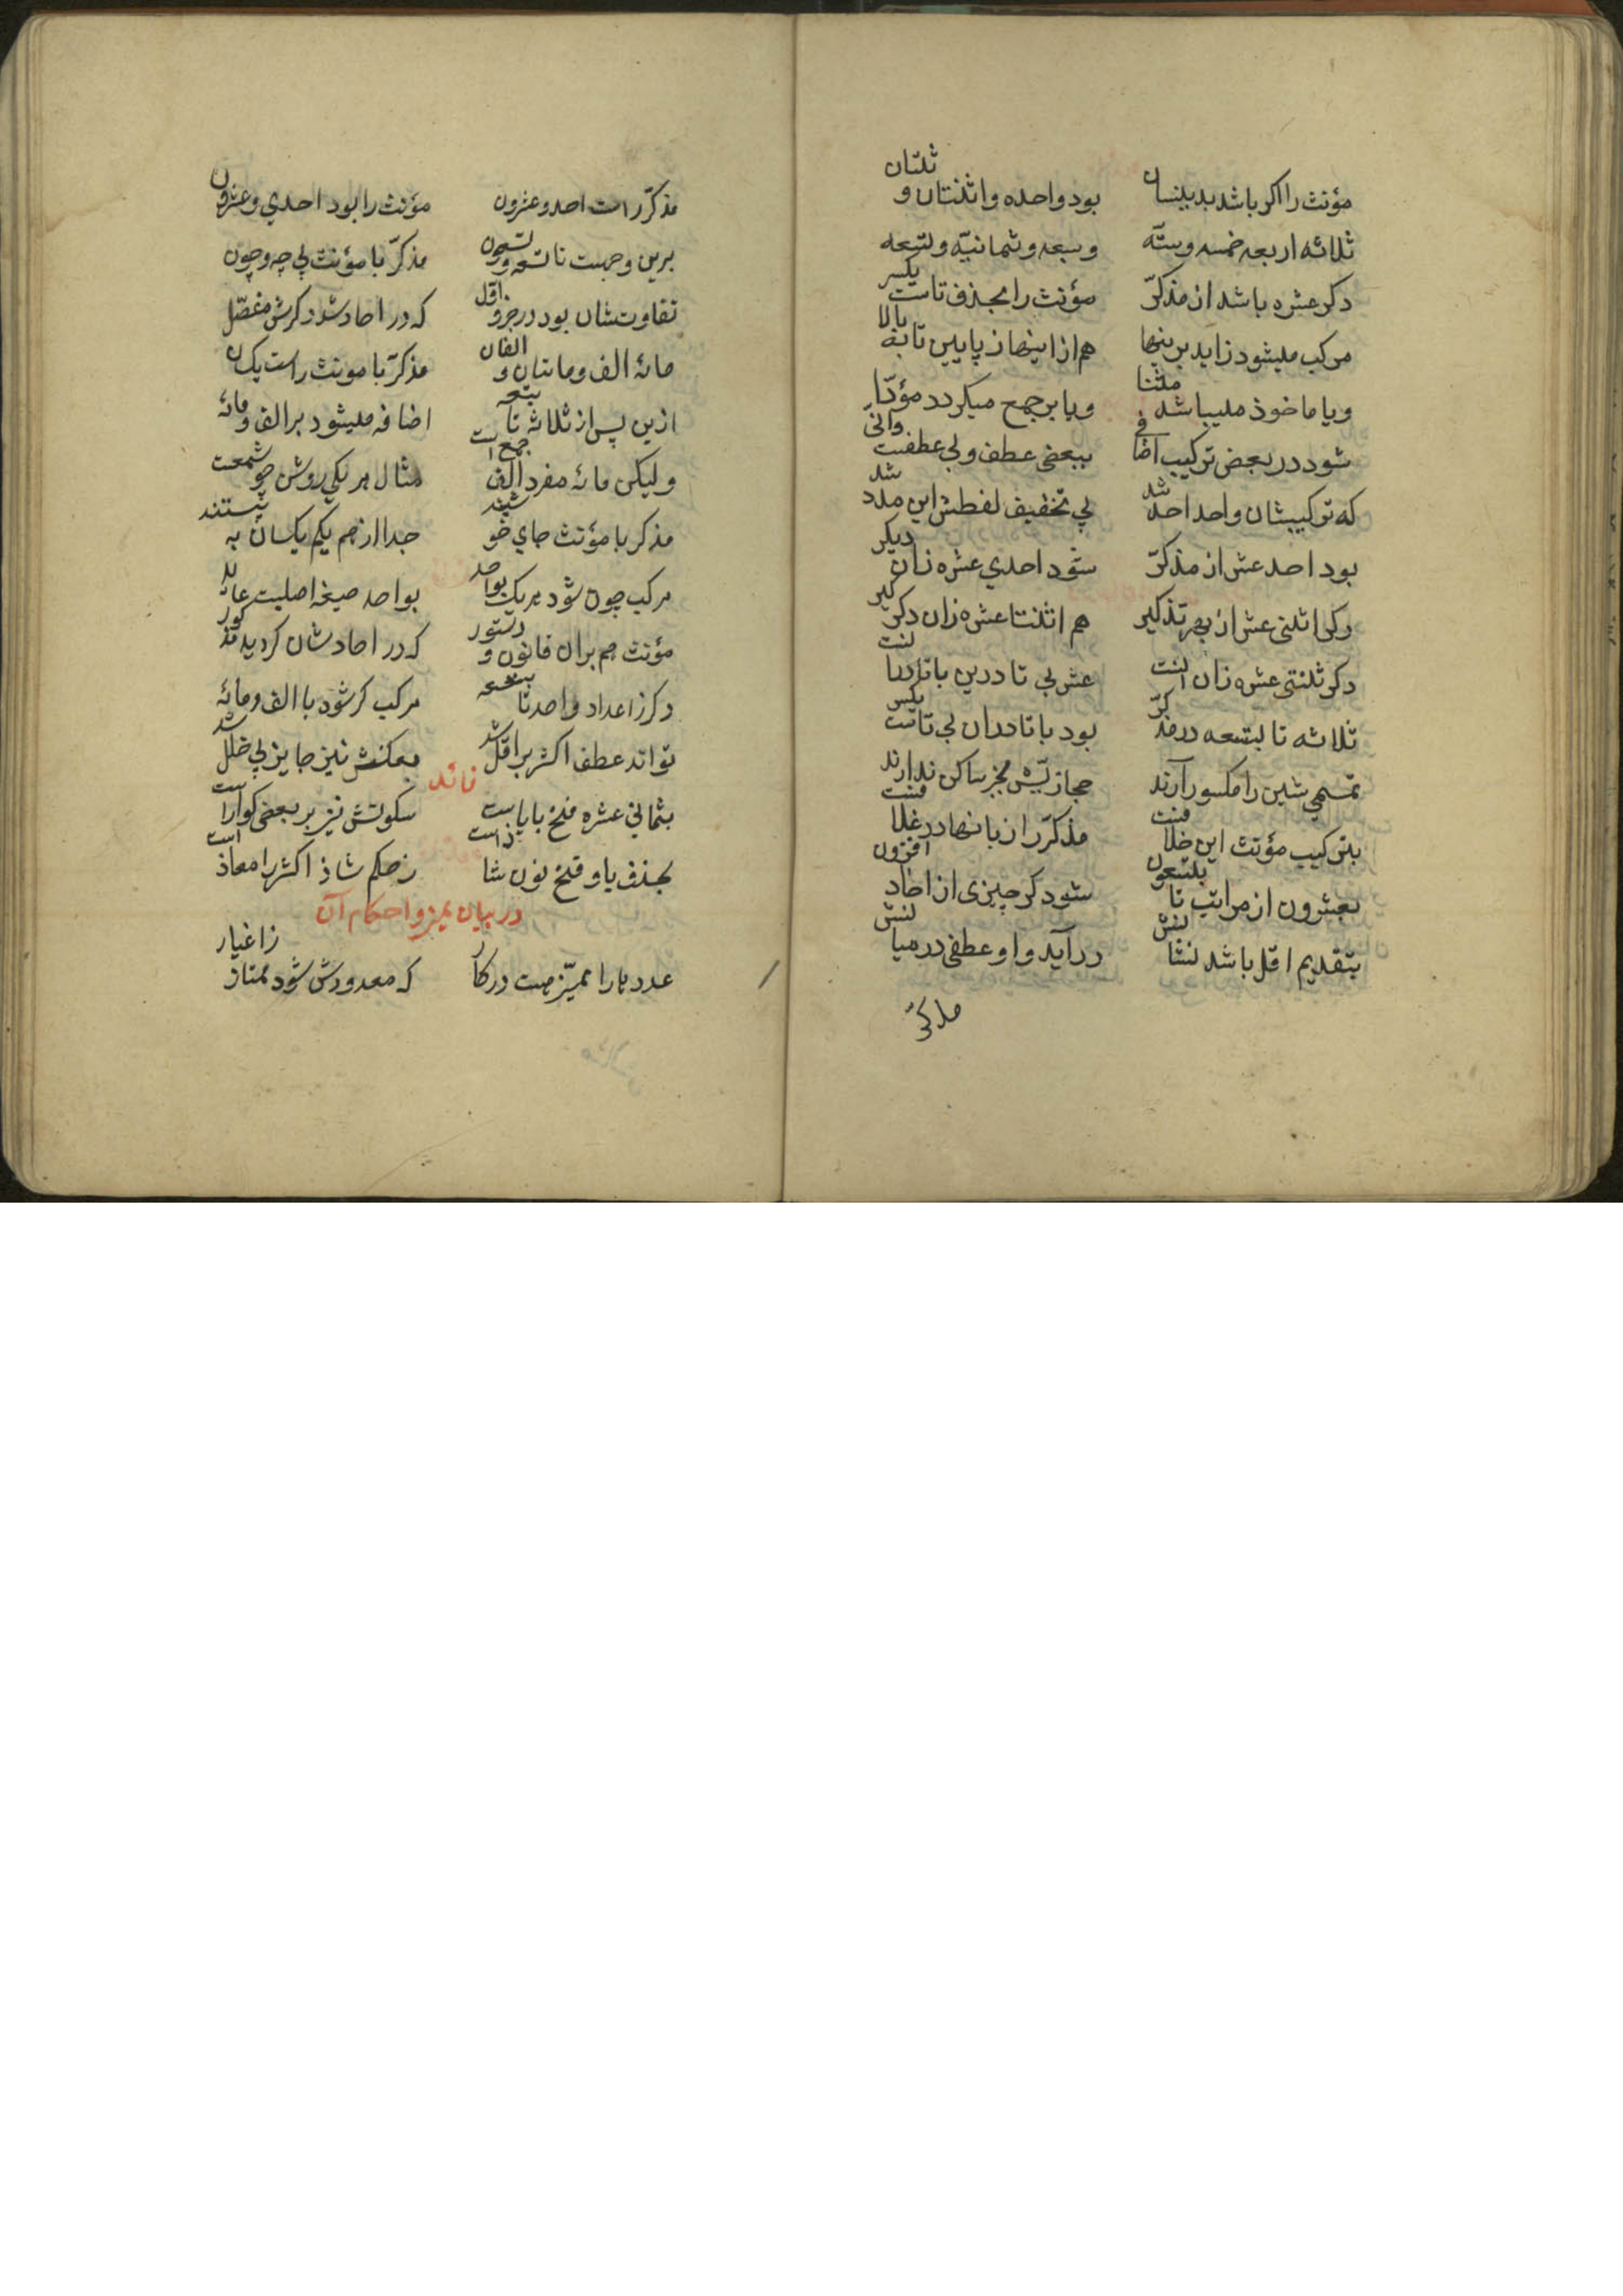 مؤنث را اکر باشد بدینسان بود واحده و اثنتان و ثنتان
ثلاثه اربعه خمسه وستّه وسبعه وثمانیّه وتسعه
دکر عشره باشد از مذکرّ مؤنث را بحذف تاست یکسر
مرکب میشود زاید برینها هم از اینها ز پایین تا به بالا
ویا ماخوذ میباشد مثنا ویا بر جمع میکردد مؤدّا
شود در بعض ترکیب اضافی ببعضی عطف وبی عطفست وافی
که ترکیبشان واحد احد شد پی تخفیف لفظش این مدد شد
بود احد عشر از مذکرّ شود احدی عشره زان دیکر
دکر اثنی عشر از بهر تذکیر هم اثنتا عشره زان دکر کیر
دکر ثنتی عشره زان عشر بی تا درین با تا در
ثلاثه تا بتسعه در مذکرّ بود با تا دران بی تاست یکسر
تمیمی شین را مکسور آرند حجازیش بجز ساکن ندارند
بترکیب مؤنث این خلافست مذکرّ را زبانها در غلافست
بعشرون از مراتب تا بتسعون شود کر چیزی از احاد افزون
بتقدیم اقل باشد در آید واو عطفی در میا
مذکرّ
مذکرّ راست احد وعشرون مؤنث را بود احدی وعشرون
برین وجهست تا تسعه وتسعون مذکرّ با مؤنث بی چه وچون
تفاوتشان بود در جزو اقل که در احاد شد ذکرش مفصّل
مائه الف ومائتان و الفان مذکرّ با مونث راست یکسان
ازین پس از ثلاثه تا بتسعه اضافه میشود بر الف ومائه
ولیکن مائه مفرد الف جمع است مثال هر یکی روشن چو شمعست
مذکر با مؤنث جای جدا از هم بکم یکسان
مرکب چون شود هر یک بواحد بواحد صیغه اصلیست عائد
مؤنث هم بران قانون و دستور که در احادشان کردید مذکور
دکر ز اعداد واحد تا بتسعه مرکب کر شود با الف ومائه
تواند عطف اکثر بر اقل شد بعکسش نیز جایز بی خلل شد
فائده
بثمانی عشره فتح یا است سکونش نیز بر بعضی کواراست
بحذف یا و فتح نون شاذ است ز حکم شاذ اکثر را معاذ است
در بیان ممیز و احکام آن
عدد را ممیّز هست در کار که معدودش شود ممتاز ز اغیار